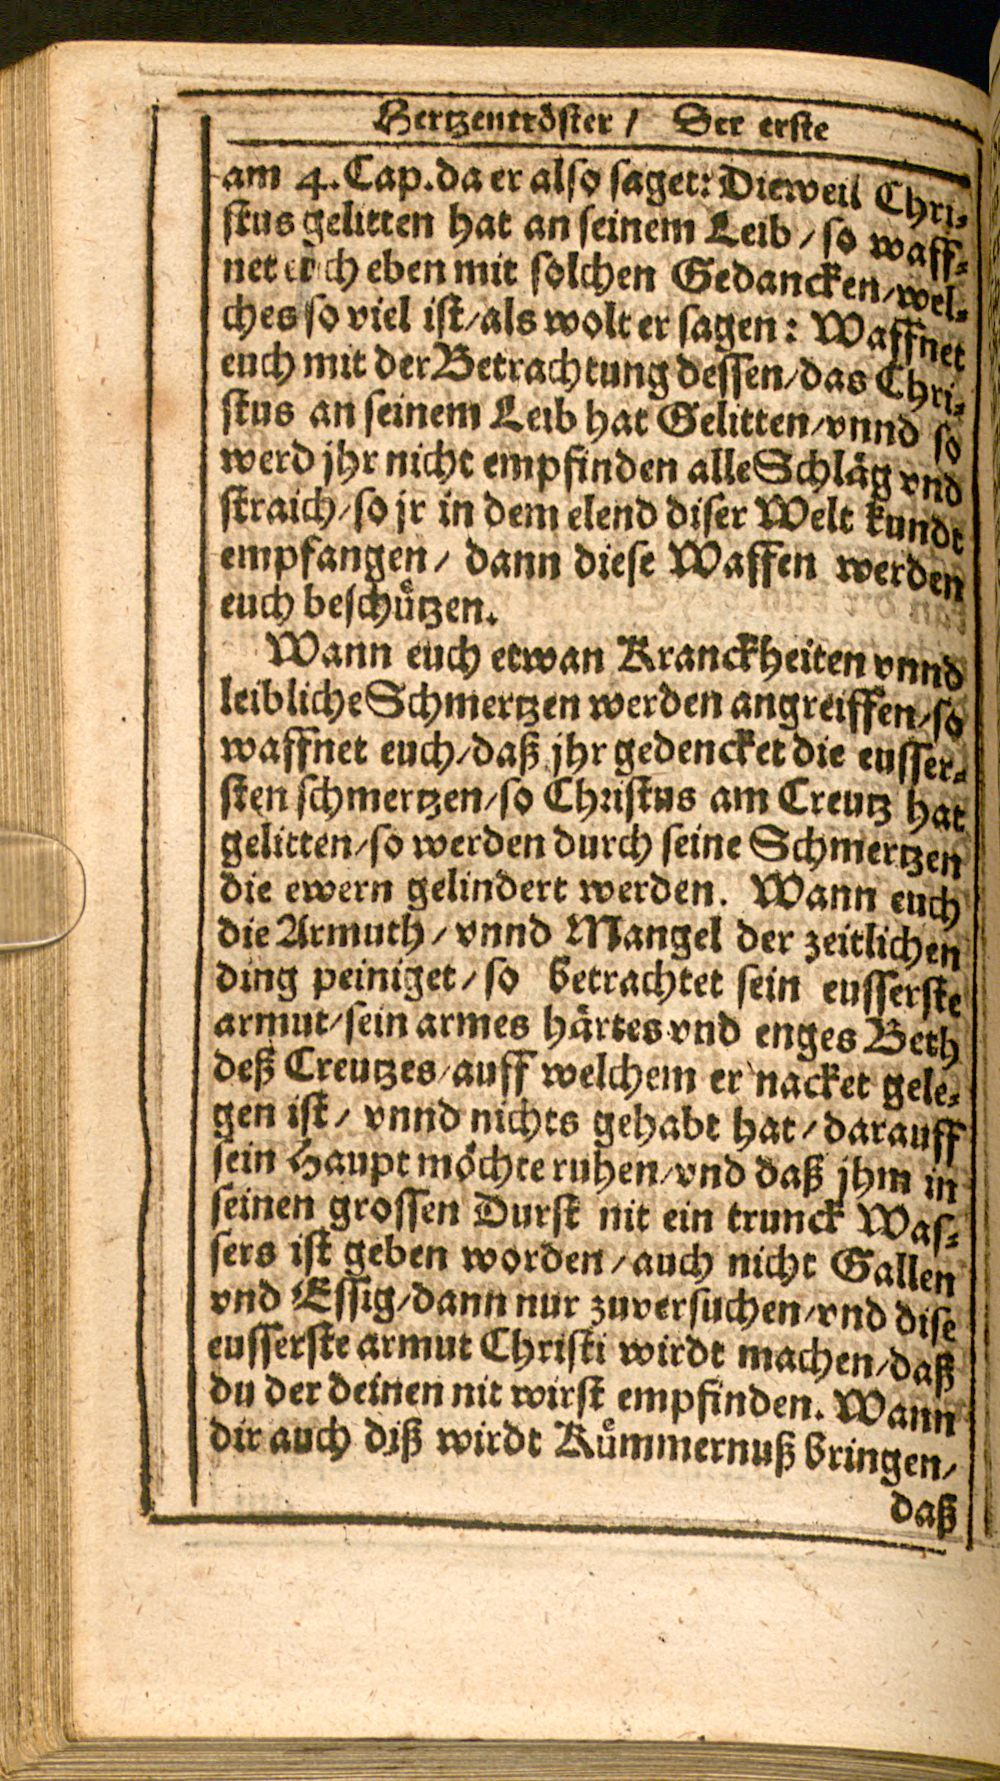 Hertzentröster / Der erste
am 4. Cap. da er also saget: Dieweil Chri-
stus gelitten hat an seinem Leib / so waff-
net euch eben mit solchen Gedancken / wel-
ches so viel ist / als wolt er sagen: Waffnet
euch mit der Betrachtung dessen / das Chri-
stus an seinem Leib hat Gelitten / vnnd so
werd jhr nicht empfinden alle Schläg vnd
straich / so jr in dem elend diser Welt kundt
empfangen / dann diese Waffen werden
euch beschützen.
Wann euch etwan Kranckheiten vnnd
leibliche Schmertzen werden angreiffen / so
waffnet euch / daß jhr gedencket die eusser-
sten schmertzen / so Christus am Creutz hat
gelitten / so werden durch seine Schmertzen
die ewern gelindert werden. Wann euch
die Armuth / vnnd Mangel der zeitlichen
ding peiniget / so betrachtet sein eusserste
armut / sein armes härtes vnd enges Beth
deß Creutzes / auff welchem er nacket gele-
gen ist / vnnd nichts gehabt hat / darauff
sein Haupt möchte ruhen / vnd daß jhm in
seinen grossen Durst nit ein trunck Was-
sers ist geben worden / auch nicht Gallen
vnd Essig / dann nur zuversuchen / vnd dise
eusserste armut Christi wirdt machen / daß
du der deinen nit wirst empfinden. Wann
dir auch diß wirdt Kümmernuß bringen /
daß